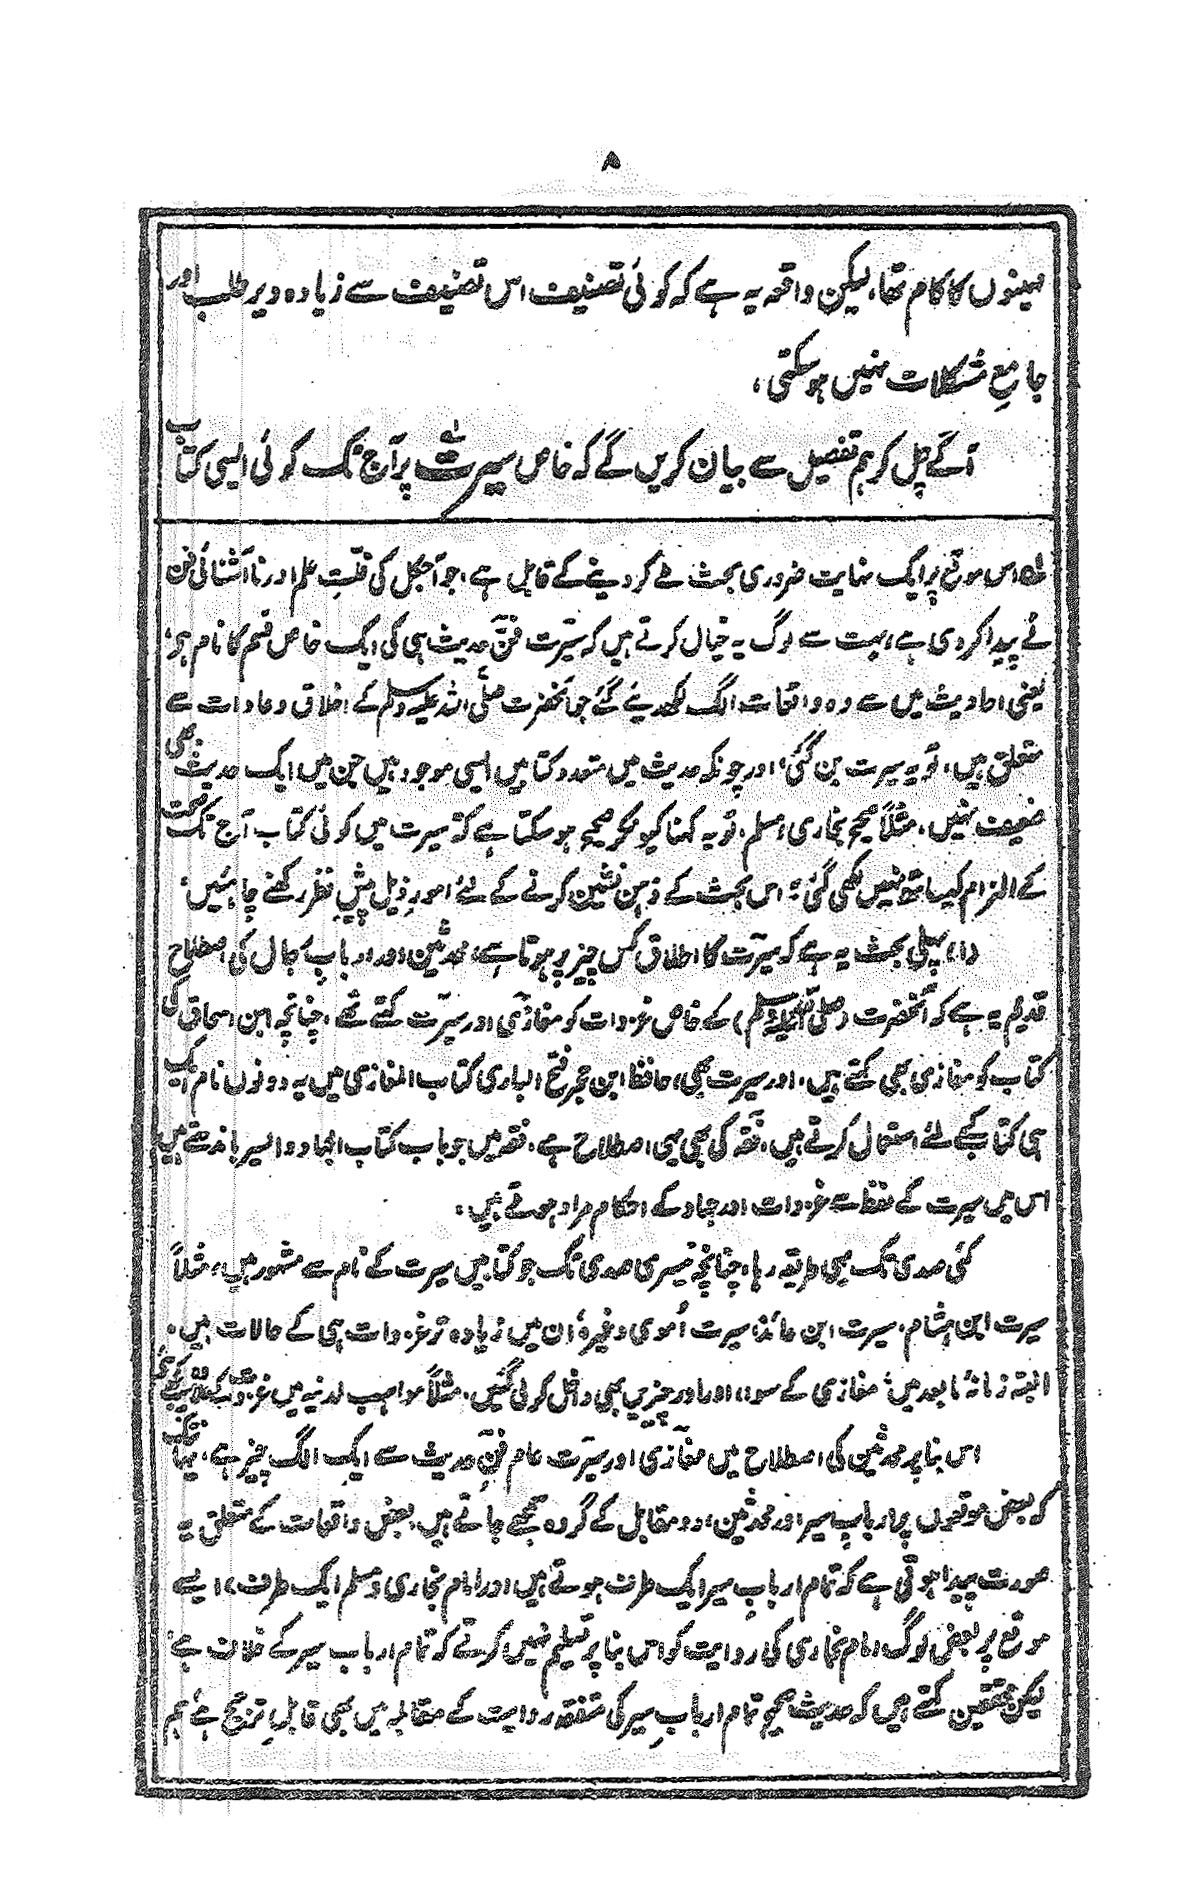 ۸
مہینوں کا کام تھا، لیکن واقعہ یہ ہے کہ کوئی تصنیف اس تصنیف سے زیادہ دیر طلب اور
جامعِ مشکلات نہیں ہو سکتی،
آگے چل کر ہم تفصیل سے بیان کریں گے کہ خاص سیرت پر آج تک کوئی ایسی کتاب
لہ اس موقع پر ایک نہایت ضروری بحث طے کر دینے کے قابل ہے، جو آجکل کی قلتِ علم اور نا آشنائی فن
نے پیدا کر دی ہے، بہت سے لوگ یہ خیال کرتے ہیں کہ سیرت فنِ حدیث ہی کی ایک خاص قسم کا نام ہو،
یعنی احادیث میں سے وہ واقعات الگ لکھدیئے گئے جو آنحضرت صلی اللہ علیہ وسلم کے اخلاق و عادات سے
متعلق ہیں، تو یہ سیرت بن گئی، اور چونکہ حدیث میں متعدد کتابیں ایسی موجود ہیں جن میں ایک حدیث بھی
ضعیف نہیں، مثلاً صحیح بخاری و مسلم، تو یہ کہنا کیونکر صحیح ہو سکتا ہے کہ سیرت میں کوئی کتاب آج تک صحت
کے التزام کیساتھ نہیں لکھی گئی؟ اس بحث کے ذہن نشین کرنے کے لئے امورِ ذیل پیشِ نظر رکھنے چاہئیں،
(۱) پہلی بحث یہ ہے کہ سیرت کا اطلاق کس چیز پر ہوتا ہے، محدثین اور اربابِ رجال کی اصطلاح
قدیم یہ ہے کہ آنحضرت (صلی اللہ علیہ وسلم) کے خاص غزوات کو مغازی اور سیرت کہتے تھے، چنانچہ ابن اسحاق کی
کتاب کو مغازی بھی کہتے ہیں، اور سیرت بھی، حافظ ابن حجر فتح الباری کتاب المغازی میں یہ دونوں نام ایک
ہی کتاب کے لئے استعمال کرتے ہیں، فقہ کی بھی یہی اصطلاح ہے، فقہ میں جو باب کتاب الجہاد والسیر باندھتے ہیں
اس میں سیرت کے لفظ سے غزوات اور جہاد کے احکام مراد ہوتے ہیں،
کئی صدی تک یہی طریقہ رہا، چنانچہ تیسری صدی تک جو کتابیں سیرت کے نام سے مشہور ہیں، مثلاً
سیرت ابن ہشام، سیرت ابن عائذ، سیرت اُموی وغیرہ، ان میں زیادہ تر غزوات ہی کے حالات ہیں،
البتہ زمانۂ مابعد میں مغازی کے سوا، اور اور چیزیں بھی داخل کر لی گئیں، مثلاً مواہب لدنیہ میں غزوات کے علاوہ سب کچھ ہے
اس بنا پر محدثین کی اصطلاح میں مغازی اور سیرت عام فنِ حدیث سے ایک الگ چیز ہے، یہانتک
کہ بعض موقعوں پر اربابِ سیر اور محدثین، دو مقابل کے گروہ سمجھے جاتے ہیں، بعض واقعات کے متعلق یہ
صورت پیدا ہوتی ہے کہ تمام اربابِ سیر ایک طرف ہوتے ہیں اور امام بخاری و مسلم ایک طرف، ایسے
موقع پر بعض لوگ امام بخاری کی روایت کو اس بنا پر تسلیم نہیں کرتے کہ تمام اربابِ سیر کے خلاف ہے،
لیکن محققین کہتے ہیں کہ حدیث صحیح تمام اربابِ سیر کی متفقہ روایت کے مقابلہ میں بھی قابلِ ترجیح ہے، ہم